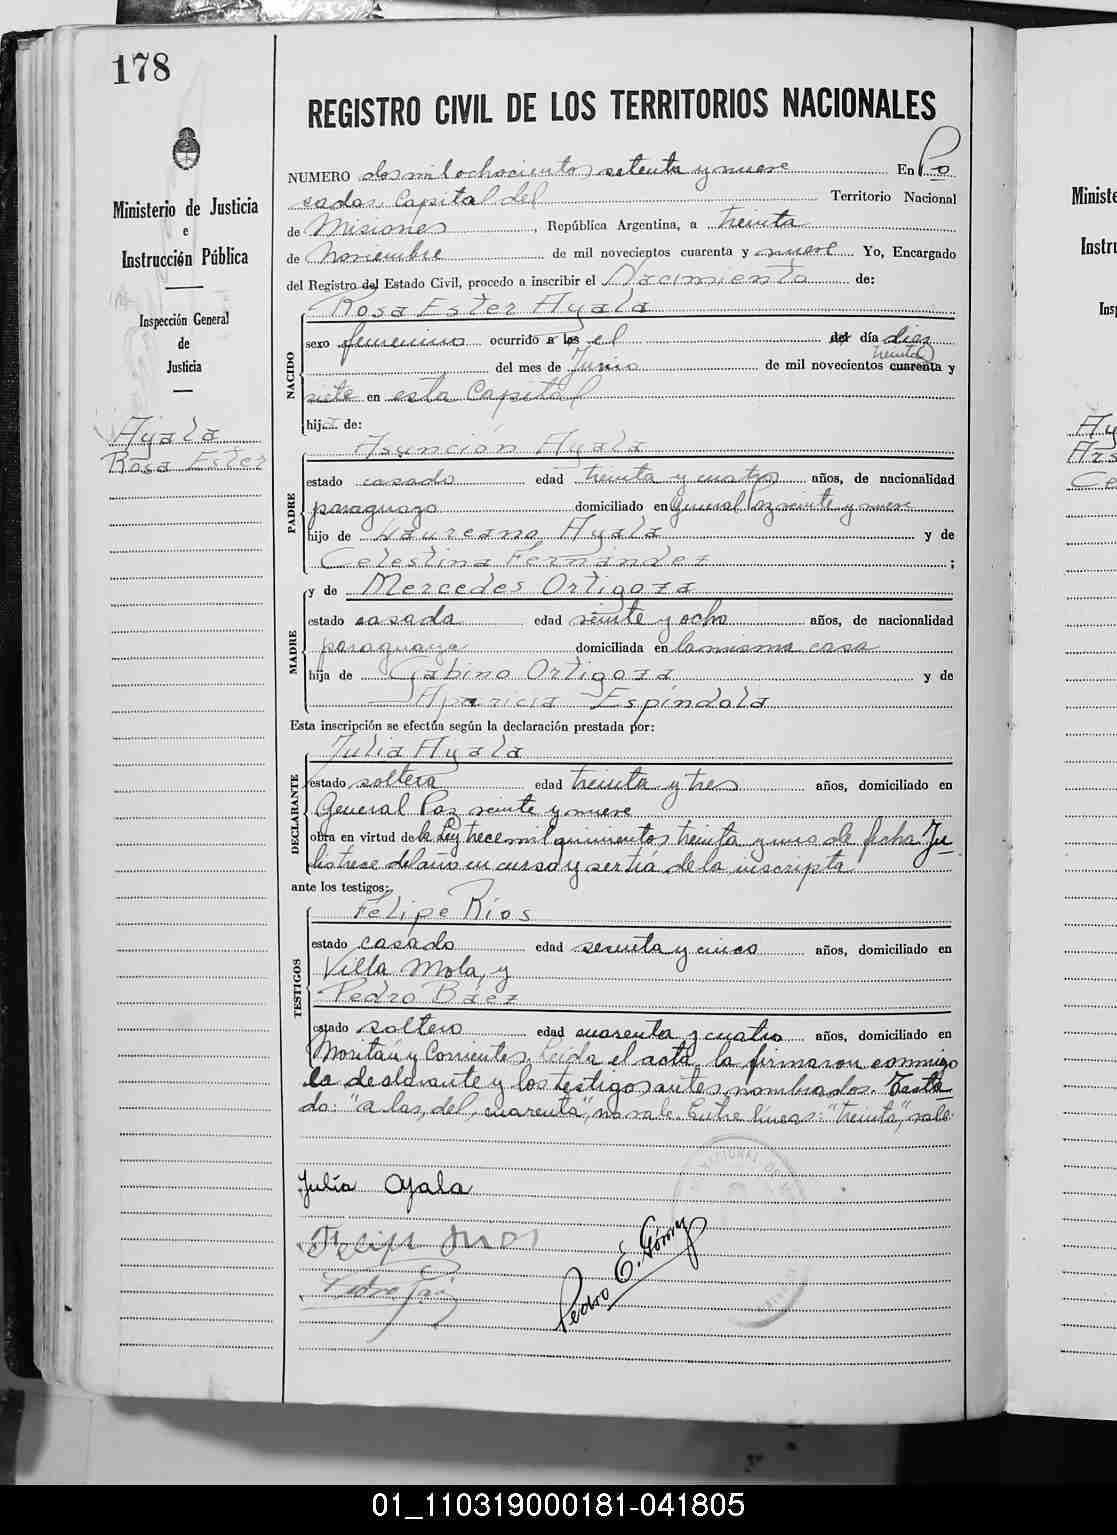 178
REGISTRO CIVIL DE LOS TERRITORIOS NACIONALES
Ministerio de Justicia
e
Instrucción Pública
Inspección General
de
Justicia
Ayala
Rosa Ester
NUMERO dos mil ochocientos setenta y nueve En Po
sadas, Capital del Territorio Nacional
de Misiones, República Argentina, a treinta
de Noviembre de mil novecientos cuarenta y nueve Yo, Encargado
del Registro del Estado Civil, procedo a inscribir el Nacimiento de:
NACIDO
Rosa Ester Ayala
sexo femenino ocurrido a las el del día dies
treinta
del mes de Junio de mil novecientos cuarenta y
siete en esta Capital
hija de:
PADRE
Asunción Ayala
estado casado edad treinta y cuatro años, de nacionalidad
paraguayo domiciliado en General Paz veinte y nueve
hijo de Laureano Ayala y de
Celestina Fernández ;
MADRE
y de Mercedes Ortigoza
estado casada edad veinte y ocho años, de nacionalidad
paraguaya domiciliada en la misma casa
hija de Gabino Ortigoza y de
Aparicia Espíndola
Esta inscripción se efectúa según la declaración prestada por:
DECLARANTE
Julia Ayala
estado soltera edad treinta y tres años, domiciliado en
General Paz veinte y nueve
obra en virtud de la Ley trece mil quinientos treinta y uno de fecha Ju-
lio trece del año en curso y ser tía de la inscripta
ante los testigos:
TESTIGOS
Felipe Ríos
estado casado edad sesenta y cinco años, domiciliado en
Villa Mola, y
Pedro Báez
estado soltero edad cuarenta y cuatro años, domiciliado en
y Corrientes. Leida el acta, la firmaron conmigo
la declarante y los testigos antes nombrados. Testa-
do: "a las, del, cuarenta", no vale. Entre líneas: "treinta", vale.
Julia Ayala
Felipe Rios
Pedro
Pedro E.
Ministe
Instru
Insp
Ay
Ars
Ce
01_110319000181-041805